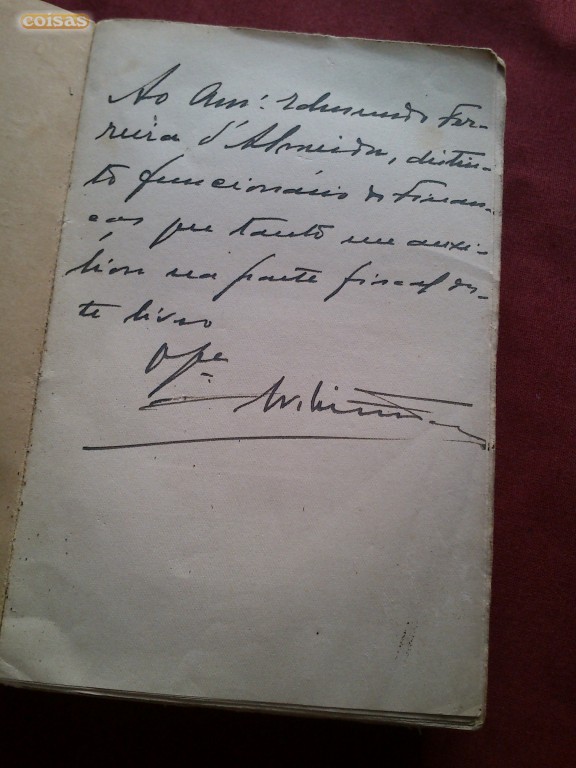 coisas
Ao Am.º Edmundo Fer-
reira d'Almeida, distin-
to funcionário de Finan-
ças que tanto me auxi-
liou na parte fiscal des-
te livro